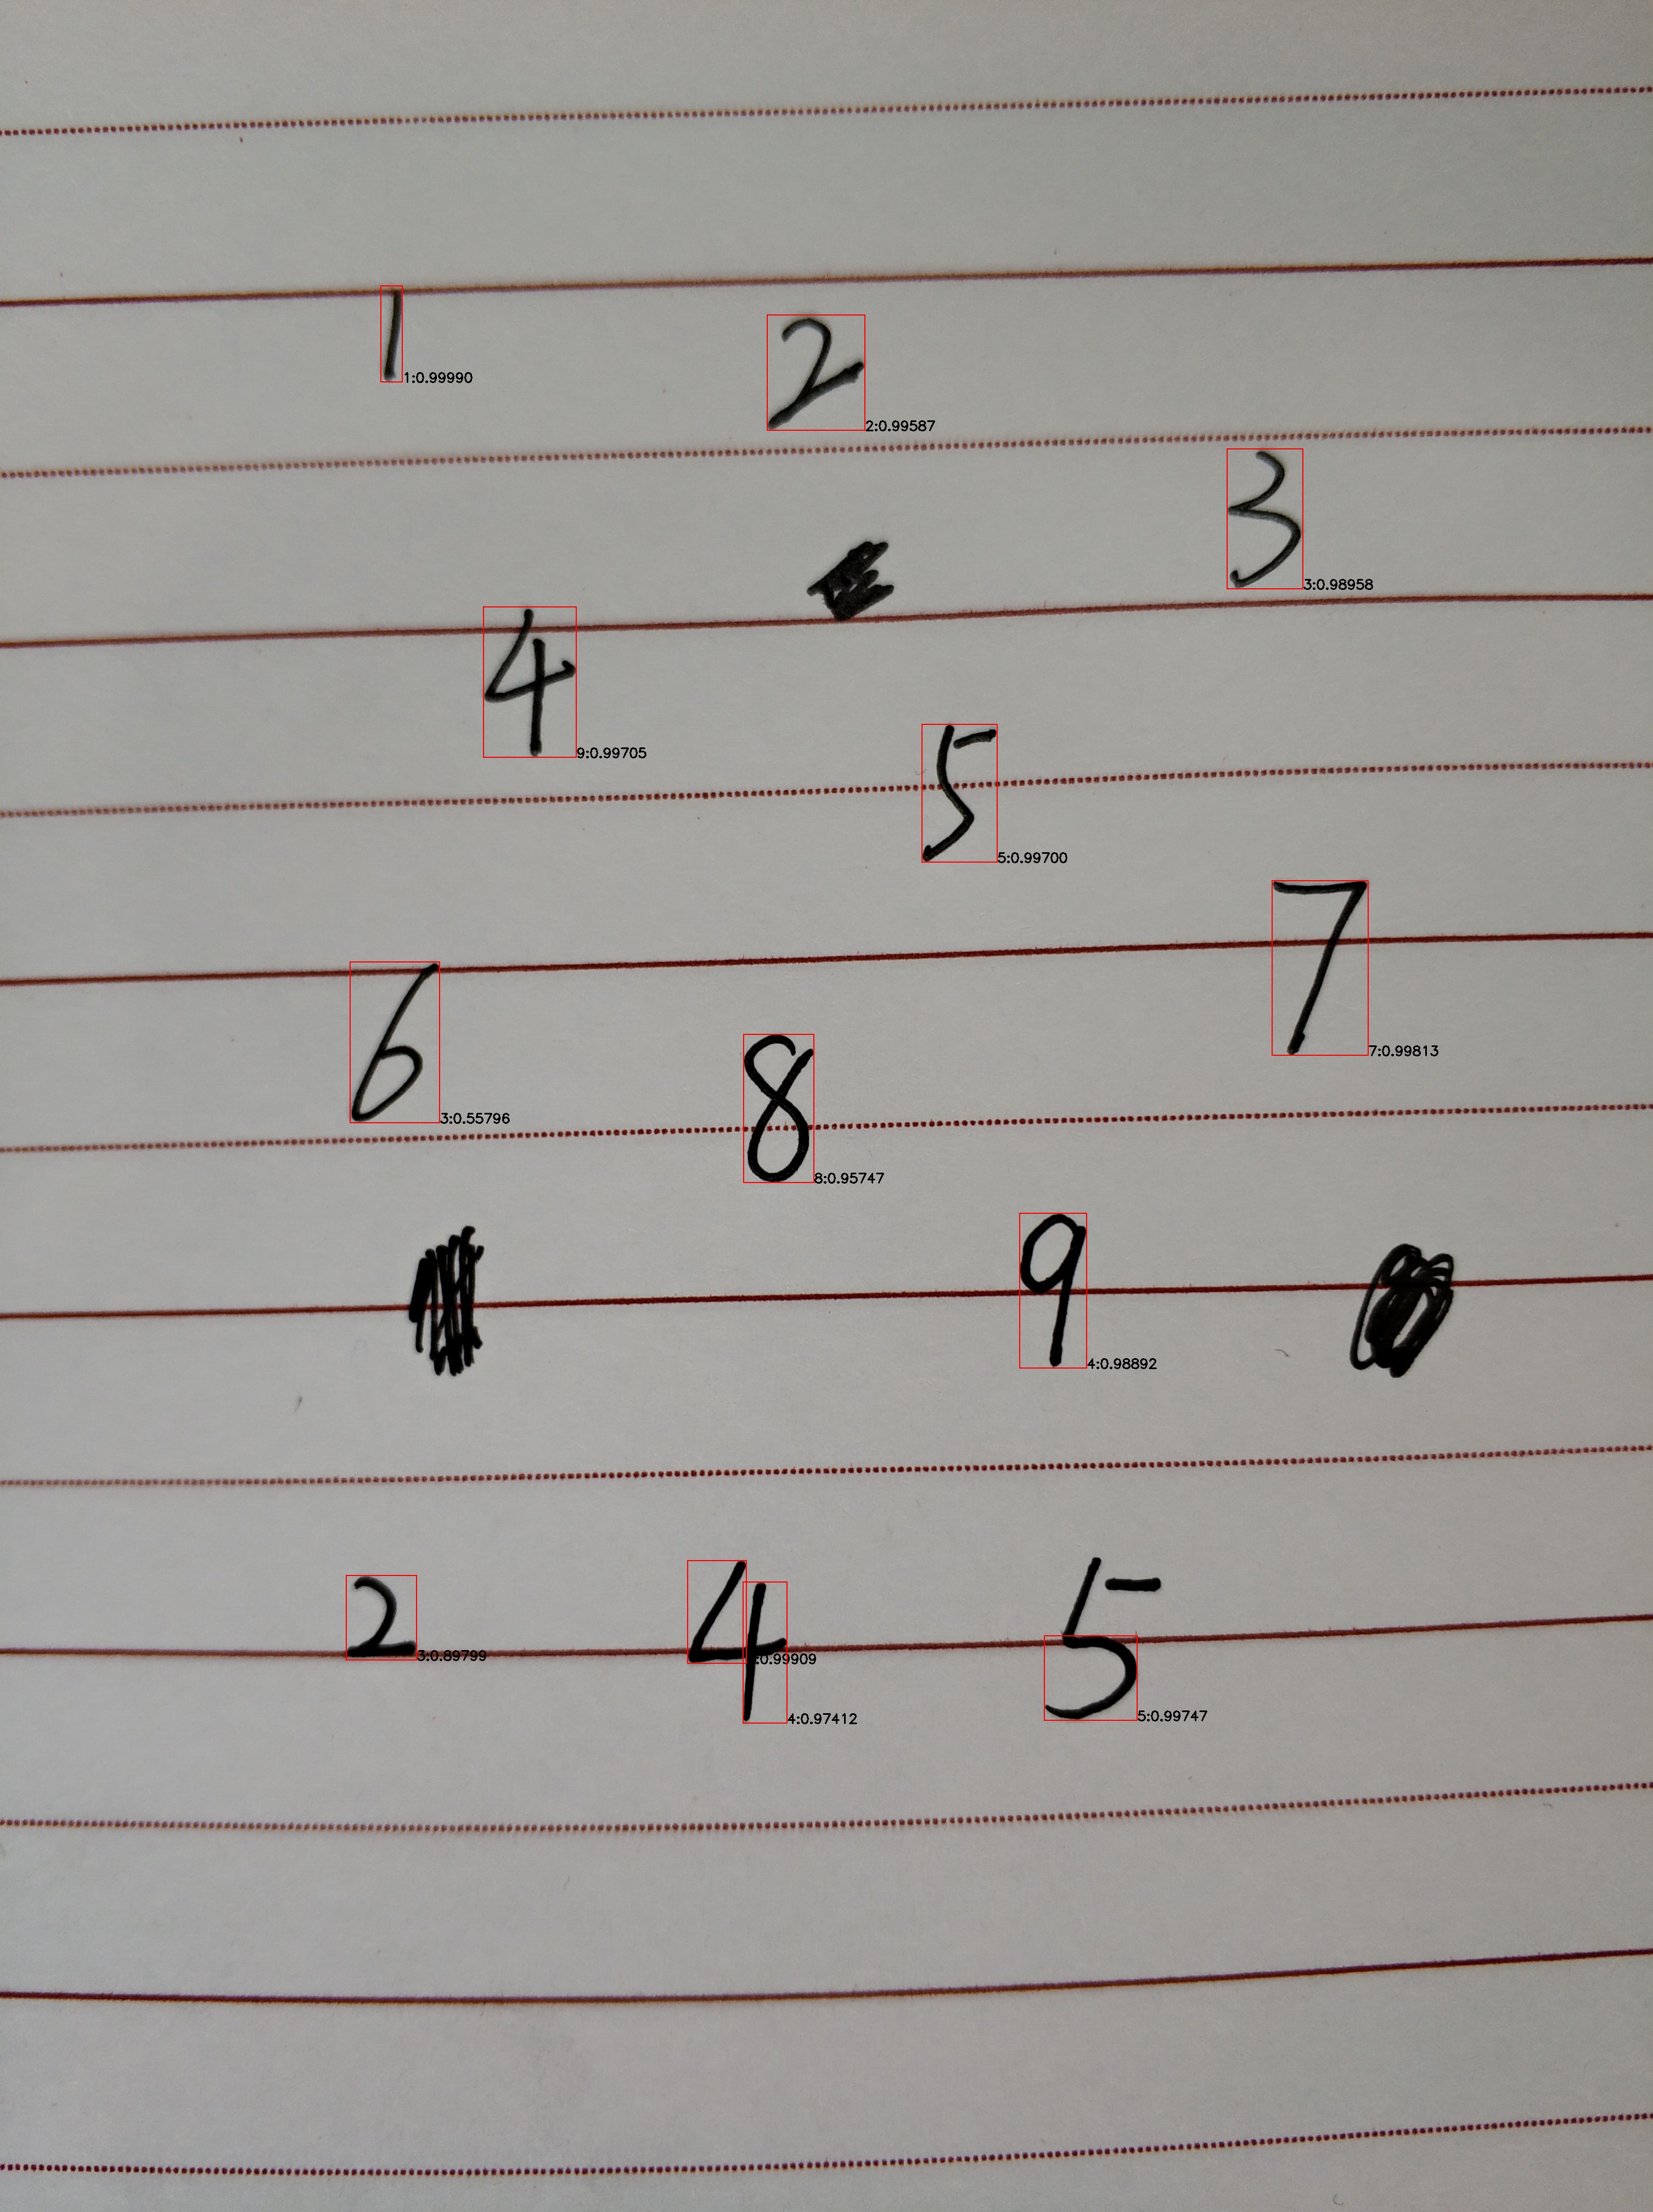 1
1:0.99990
2
2:0.99587
3
3:0.98958
4
9:0.99705
5
5:0.99700
7
7:0.99813
6
3:0.55796
8
8:0.95747
9
4:0.98892
2
3:0.89799
4
:0.99909
4:0.97412
5
5:0.99747